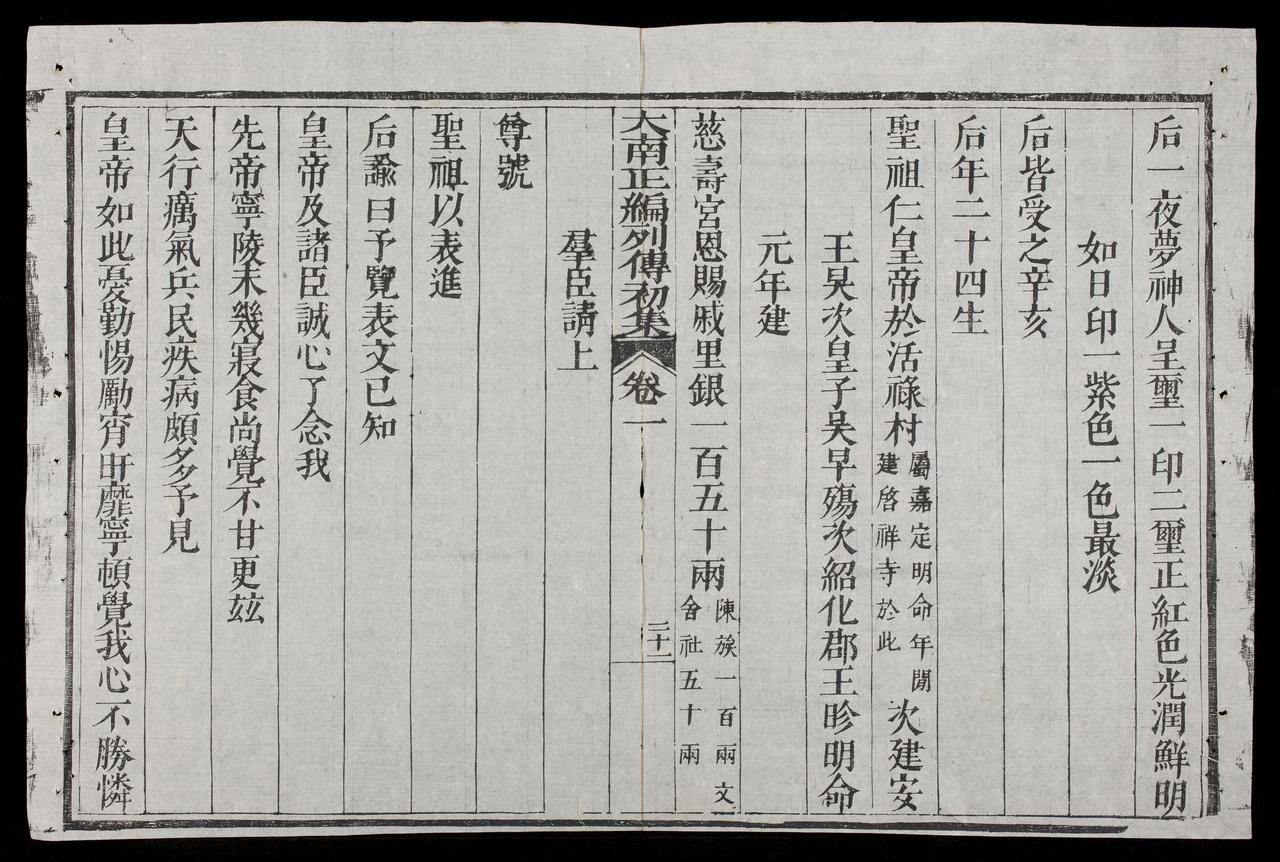 后一夜夢神人呈璽一印二璽正紅色光潤鮮明
如日印一紫色一色最淡
后皆受之辛亥
后年二十四生
聖祖仁皇帝於活祿村屬嘉定明命年間建啓祥寺於此次建安
王昊次皇子昗早殤次紹化郡王昣明命
元年建
慈壽宮恩賜戚里銀一百五十兩陳族一百兩文舍社五十兩
大南正編列傳初集 卷一 二十一
羣臣請上
尊號
聖祖以表進
后諭曰予覽表文已知
皇帝及諸臣誠心了念我
先帝寧陵未幾寢食尚覺不甘更玆
天行癘氣兵民疾病頗多予見
皇帝如此憂勤惕勵宵旰靡寧頓覺我心不勝憐